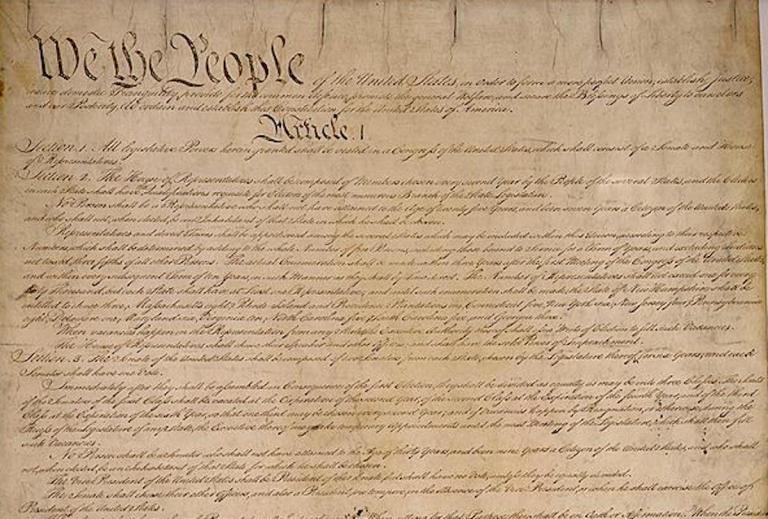 We the People of the United States, in order to form a more perfect Union, establish Justice,
insure domestic Tranquility, provide for the common defence, promote the general Welfare, and secure the Blessings of Liberty to ourselves
and our Posterity, do ordain and establish this Constitution for the United States of America.
Article. I.
Section. 1. All legislative Powers herein granted shall be vested in a Congress of the United States, which shall consist of a Senate and House
of Representatives.
Section. 2. The House of Representatives shall be composed of Members chosen every second Year by the People of the several States, and the Electors
in each State shall have the Qualifications requisite for Electors of the most numerous Branch of the State Legislature.
No Person shall be a Representative who shall not have attained to the Age of twenty five Years, and been seven Years a Citizen of the United States,
and who shall not, when elected, be an Inhabitant of that State in which he shall be chosen.
Representatives and direct Taxes shall be apportioned among the several States which may be included within this Union, according to their respective
Numbers, which shall be determined by adding to the whole Number of free Persons, including those bound to Service for a Term of Years, and excluding Indians
not taxed, three fifths of all other Persons. The actual Enumeration shall be made within three Years after the first Meeting of the Congress of the United States,
and within every subsequent Term of ten Years, in such Manner as they shall by Law direct. The Number of Representatives shall not exceed one for every
thirty Thousand, but each State shall have at Least one Representative; and until such enumeration shall be made, the State of New Hampshire shall be
entitled to chuse three, Massachusetts eight, Rhode Island and Providence Plantations one, Connecticut five, New York six, New Jersey four, Pennsylvania
eight, Delaware one, Maryland six, Virginia ten, North Carolina five, South Carolina five, and Georgia three.
When vacancies happen in the Representation from any State, the Executive Authority thereof shall issue Writs of Election to fill such Vacancies.
The House of Representatives shall chuse their Speaker and other Officers; and shall have the sole Power of Impeachment.
Section. 3. The Senate of the United States shall be composed of two Senators from each State, chosen by the Legislature thereof, for six Years; and each
Senator shall have one Vote.
Immediately after they shall be assembled in Consequence of the first Election, they shall be divided as equally as may be into three Classes. The Seats
of the Senators of the first Class shall be vacated at the Expiration of the second Year, of the second Class at the Expiration of the fourth Year, and of the third
Class at the Expiration of the sixth Year, so that one third may be chosen every second Year; and if Vacancies happen by Resignation, or otherwise, during the
Recess of the Legislature of any State, the Executive thereof may make temporary Appointments until the next Meeting of the Legislature, which shall then fill
such Vacancies.
No Person shall be a Senator who shall not have attained to the Age of thirty Years, and been nine Years a Citizen of the United States, and who shall
not, when elected, be an Inhabitant of that State for which he shall be chosen.
The Vice President of the United States shall be President of the Senate, but shall have no Vote, unless they be equally divided.
The Senate shall chuse their other Officers, and also a President pro tempore, in the Absence of the Vice President, or when he shall exercise the Office of
President of the United States.
When sitting for that Purpose, they shall be on Oath or Affirmation. When the President